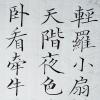 輕羅小扇
天階夜色
卧看牽牛